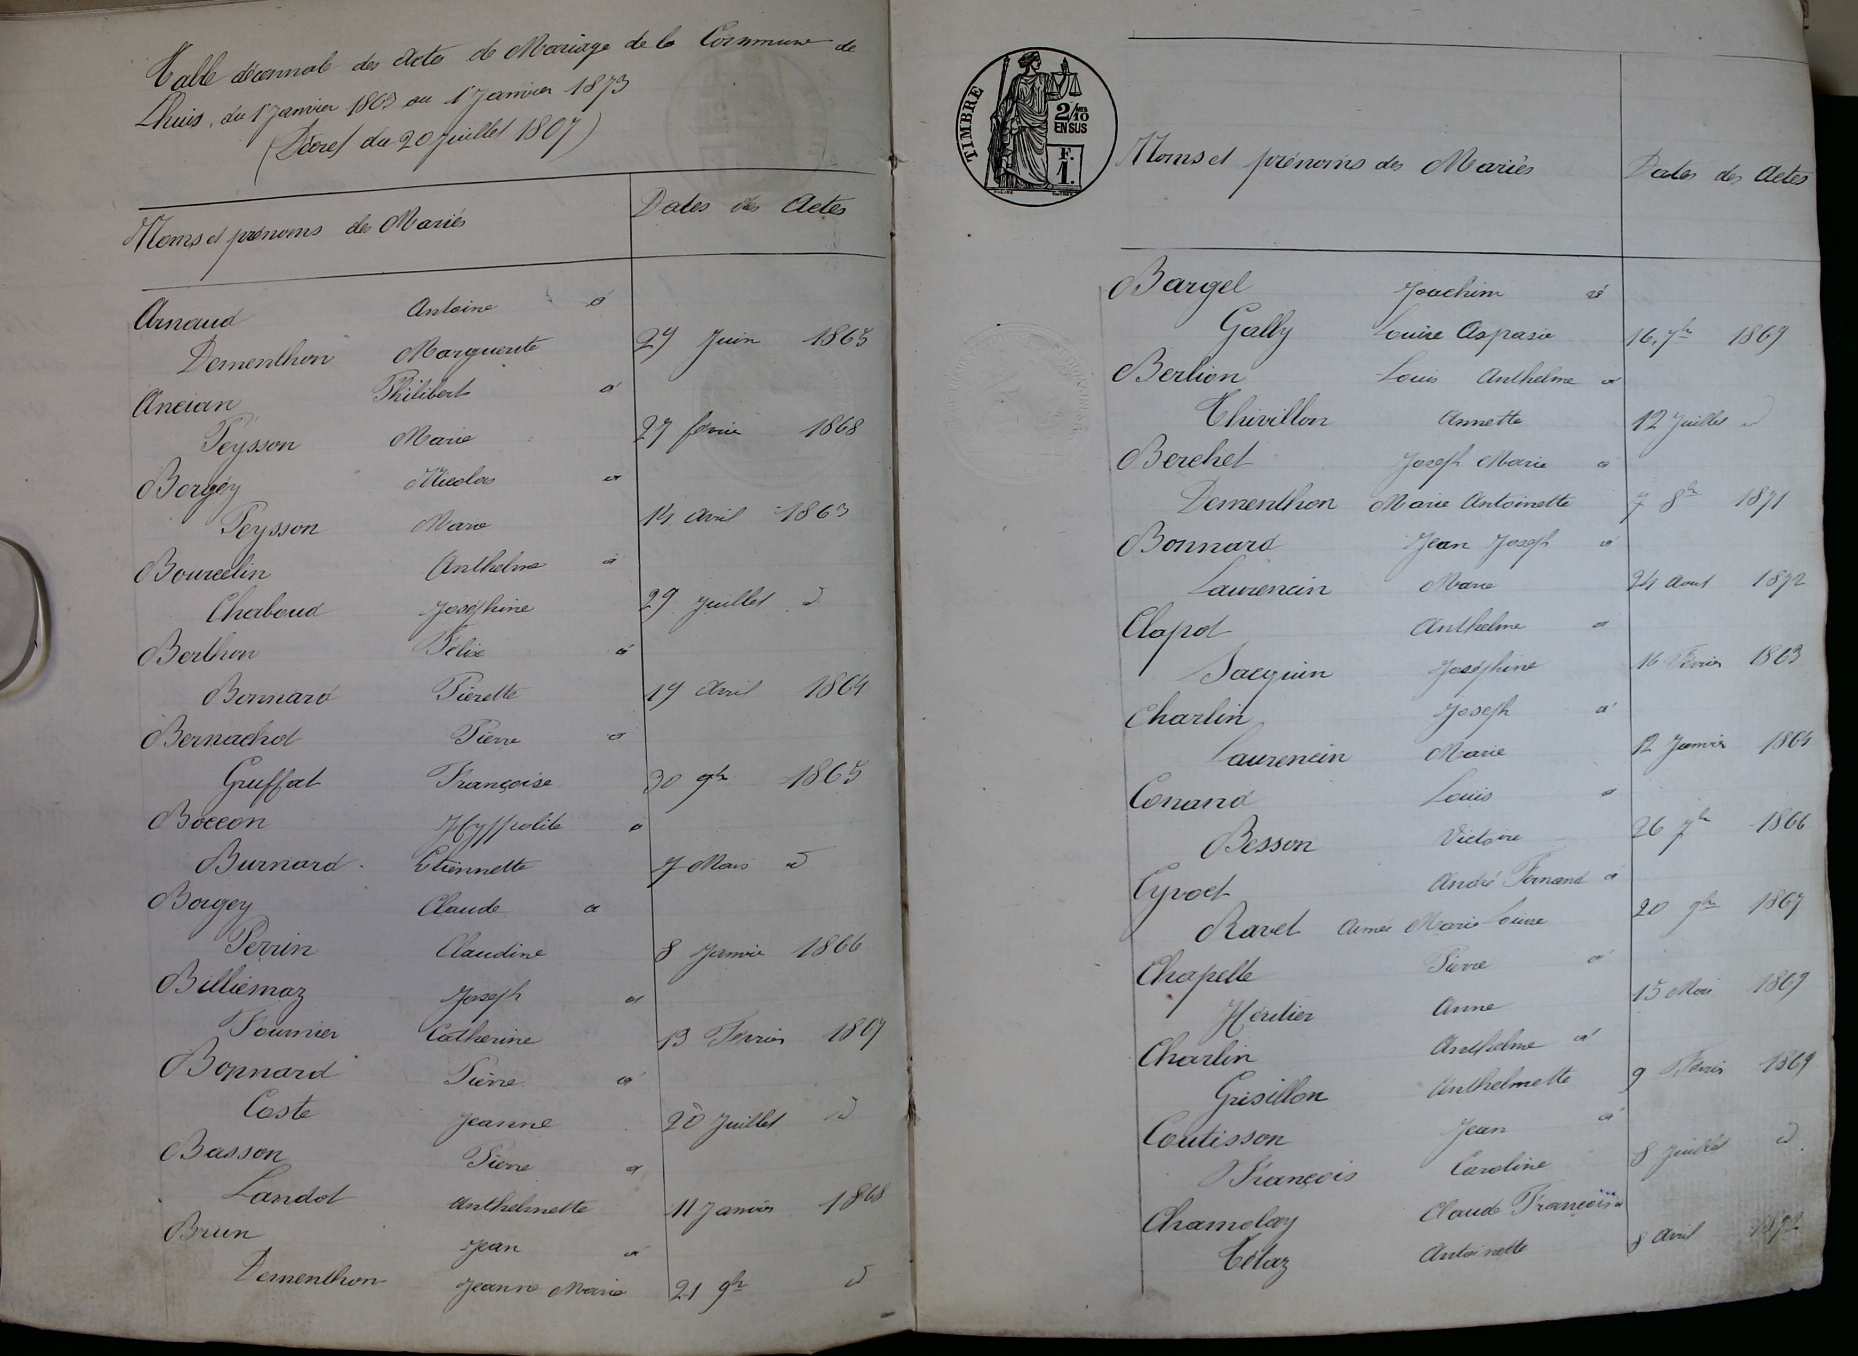 Table décennale des Actes de Mariage de la Commune de
Lhuis, du 1er Janvier 1863 au 1er Janvier 1873
(Décret du 20 Juillet 1807)
Noms et prénoms des Mariés Dates des Actes
Arnaud Antoine à
Dementhon Marguerite 29 Juin 1865
Ancian Philibert à
Peysson Marie 27 février 1868
Borgey Nicolas à
Peysson Marie 14 Avril 1863
Bourcelin Anthelme à
Chaboud Joséphine 29 Juillet d
Berthon Félix à
Bonnard Pierette 19 Avril 1864
Bernachot Pierre à
Gruffat Françoise 30 9bre 1865
Boccon Hyppolite à
Burnard Etiennette 7 Mars d
Borgey Claude à
Perrin Claudine 8 Janvier 1866
Billiémaz Joseph à
Fournier Catherine 13 Février 1867
Bonnard Pierre à
Coste Jeanne 20 Juillet d
Basson Pierre à
Landot Anthelmette 11 Janvier 1868
Brun Jean à
Dementhon Jeanne Marie 21 9bre d
TIMBRE
2/10
EN SUS
F.
1.
Noms et prénoms des Mariés Dates des Actes
Bargel Joachim à
Gally Louise Aspasie 16 7bre 1869
Berlion Louis Anthelme à
Thivillon Annette 12 Juillet d
Berchet Joseph Marie à
Dementhon Marie Antoinette 7 8bre 1871
Bonnard Jean Joseph à
Laurencin Marie 24 Aout 1872
Clapot Anthelme à
Jacquin Joséphine 16 Février 1863
Charlin Joseph à
Laurencin Marie 12 Janvier 1864
Conand Louis à
Besson Victoire 26 7bre 1866
Cyvoct André Fernand à
Ravet Aimée Marie Louise 20 9bre 1867
Chapelle Pierre à
Héritier Anne 15 Mars 1869
Charlin Anthelme à
Grisillon Anthelmette 9 Février 1869
Coutisson Jean à
François Caroline 8 Juillet d
Chamolay Claude François à
Tétaz Antoinette 8 Avril 1872